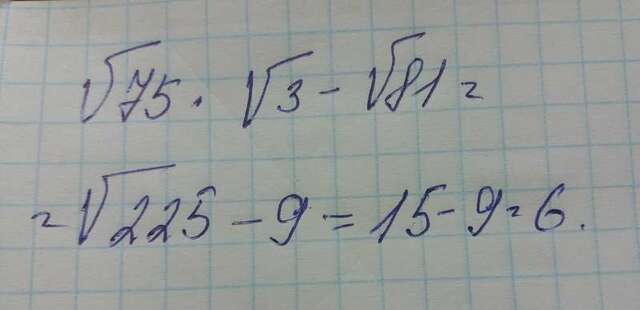 √75 · √3 - √81 =
= √225 - 9 = 15 - 9 = 6.